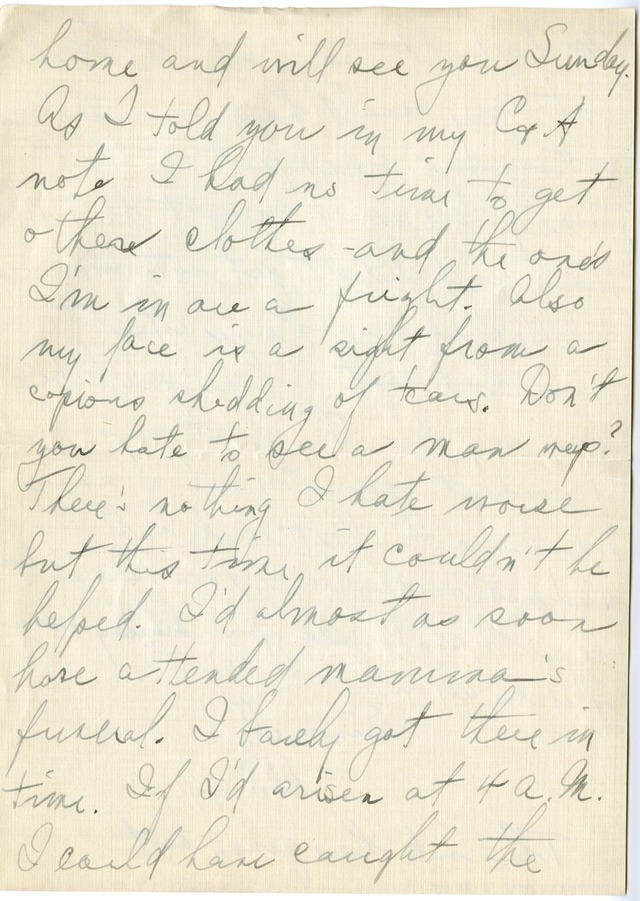 home and will see you Sunday.
As I told you in my C & A
note I had no time to get
othere clothes - and the one's
I'm in are a fright. Also
my face is a sight from a
copious shedding of tears. Don't
you hate to see a man weep?
There's nothing I hate worse
but this time it couldn't be
helped. I'd almost as soon
have attended mamma's
funeral. I barely got there in
time. If I'd arisen at 4 A.M.
I could have caught the